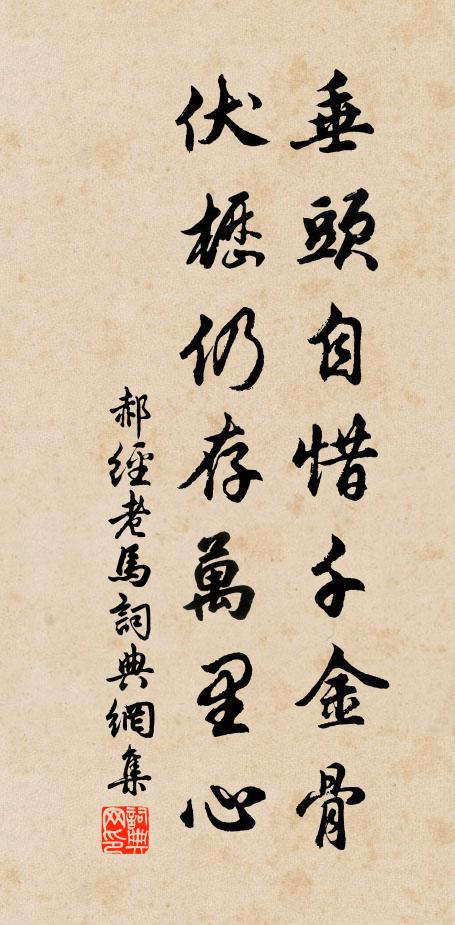 垂頭自惜千金骨
伏櫪仍存萬里心
郝經老馬詞典網集
詞典网印